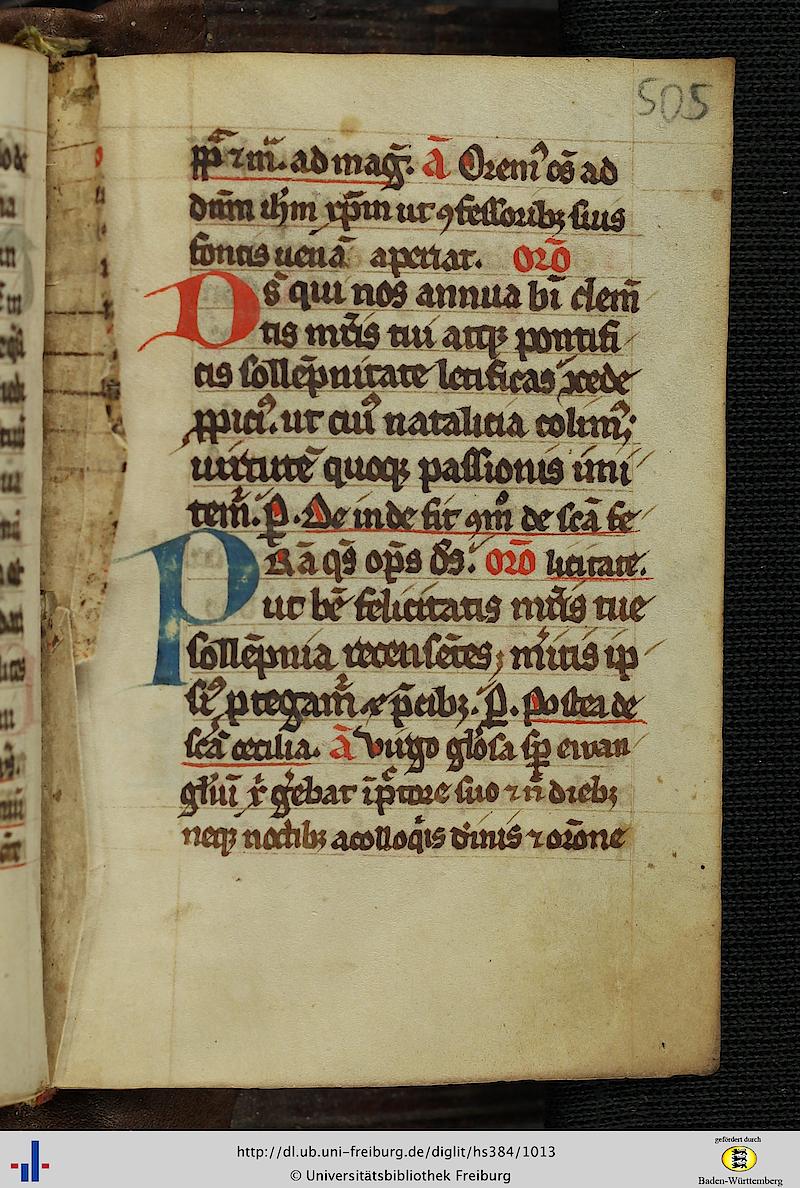 505
pp̄ ⁊ m̄. ad mag̅. A̅ Orem᷒ oēs ad
dn̄m ih̄m xp̄m ut ꝯfessoribꝫ suis
fontis uenā aperiat. Oro̅
Ds̄ qui nos annua bī clem̄
tis mr̄is tui atqꝫ pontifi
cis sollēpnitate letificas ꝯcede
ꝓpici᷒. ut cui᷒ natalicia colim᷒;
uirtutē quoqꝫ passionis imi
tem̄. P̲. De inde fit ꝯm̄ de scā fe
Rā qs̄ op̄s ds̄. Oro̅ licitate.
Put bē felicitatis mr̄is tue
sollēpnia recensētes; mitis ip
si᷒ ꝓtegam̄ p̄cibꝫ. P̲. Postea de
scā cecilia. A̅ Virgo glōsa sp̄ ewan
gliū x̄ gebat ī pectore suo ⁊ n̄ diebꝫ
neqꝫ noctibꝫ a colloqis diuinis ⁊ orōne
http://dl.ub.uni-freiburg.de/diglit/hs384/1013
© Universitätsbibliothek Freiburg
gefördert durch
Baden-Württemberg